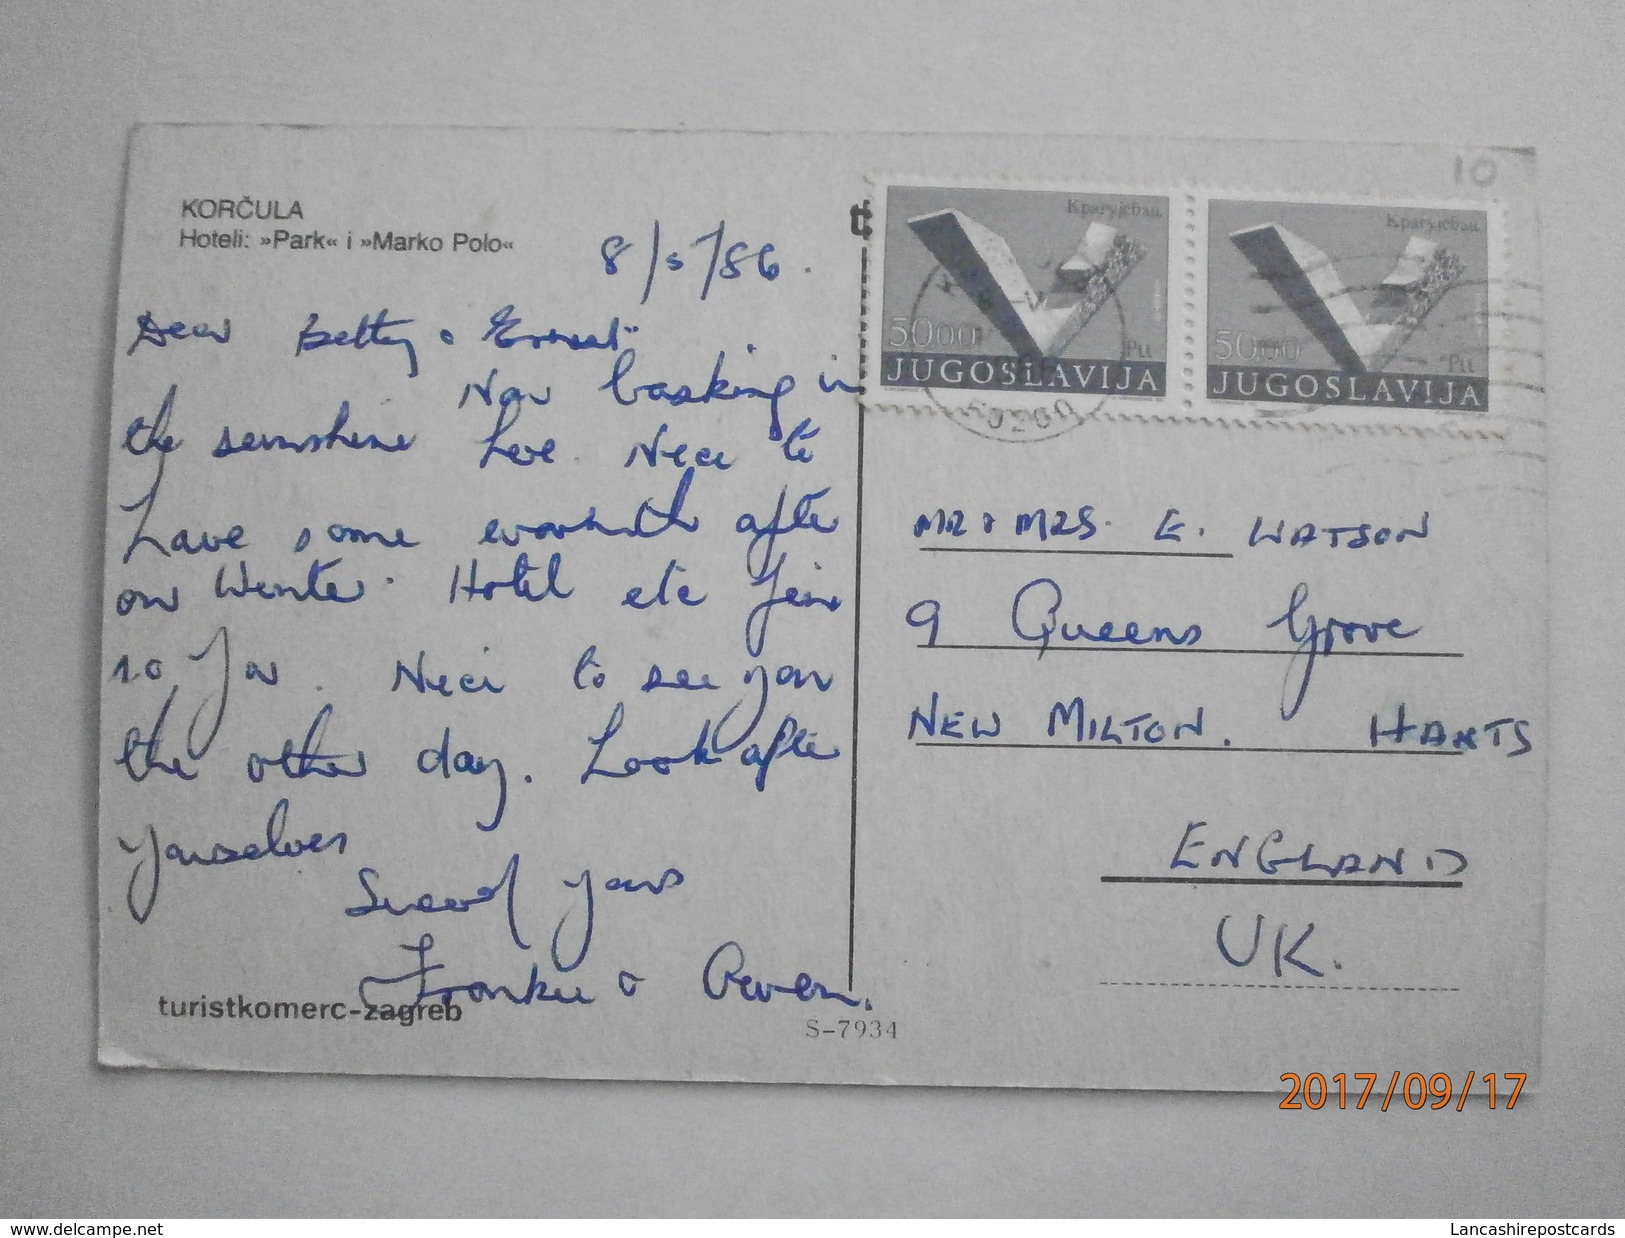 KORČULA
Hoteli: »Park« i »Marko Polo«
8/5/86.
Dear Betty & Ernest
Now basking in
the sunshine here. Nice to
have some warmth after
our Winter. Hotel etc fine
so far. Nice to see you
the other day. Look after
yourselves
Sincerely yours
Frankie &
turistkomerc-zagreb
S-7934
10
Крагујевац
5000
Ptt
JUGOSLAVIJA
Крагујевац
5000
Ptt
JUGOSLAVIJA
50260
MR & MRS. E. WATSON
9 Queens Grove
NEW MILTON. HANTS
ENGLAND
UK.
2017/09/17
www.delcampe.net
Lancashirepostcards